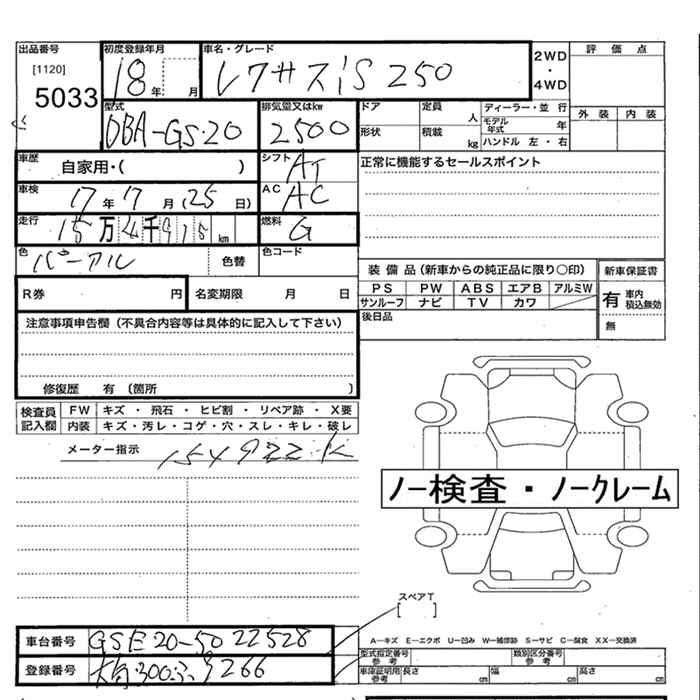 出品番号 初度登録年月 車名・グレード 2WD 評価点
[1120] 18年 月 レクサスiS 250 ・
5033 4WD 外装 内装
型式 排気量又はkw ドア 定員 人 ディーラー・並行
DBA-GS・20 2500 形状 積載 kg モデル年式 年
ハンドル 左・右
車歴 自家用・( ) シフト AT 正常に機能するセールスポイント
車検 17年 7月(25日) AC AC
走行 15万4千915km 燃料 G
色 パール 色替 色コード
装備品(新車からの純正品に限り〇印) 新車保証書
R券 円 名変期限 月 日 PS PW ABS エアB アルミW 有 車内積込無効
サンルーフ ナビ TV カワ
注意事項申告欄(不具合内容等は具体的に記入して下さい) 後日品 無
修復歴 有 (箇所 )
検査員記入欄 FW キズ・飛石・ヒビ割・リペア跡・X要
内装 キズ・汚レ・コゲ・穴・スレ・キレ・破レ
メーター指示 154922K
ノー検査・ノークレーム
スペアT
[ ]
車台番号 GSE20-5022528
A―キズ E―エクボ U―凹み W―補修跡 S―サビ C―腐食 XX―交換済
型式指定番号 参考 類別区分番号 参考
登録番号 300 9266 車庫証明用 参考 長さ cm 幅 cm 高さ cm